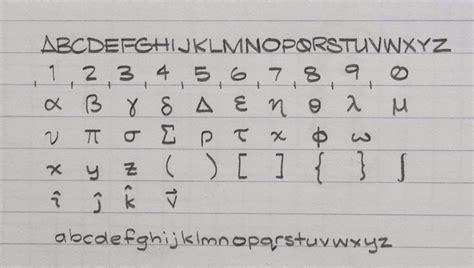 ABCDEFGHIJKLMNOPQRSTUVWXYZ
1 2 3 4 5 6 7 8 9 0
α β γ δ Δ ε η θ λ μ
ν π σ Σ ρ τ x φ ω
x y z ( ) [ ] { } ∫
î ĵ k̂ v⃗
abcdefghijklmnopqrstuvwxyz